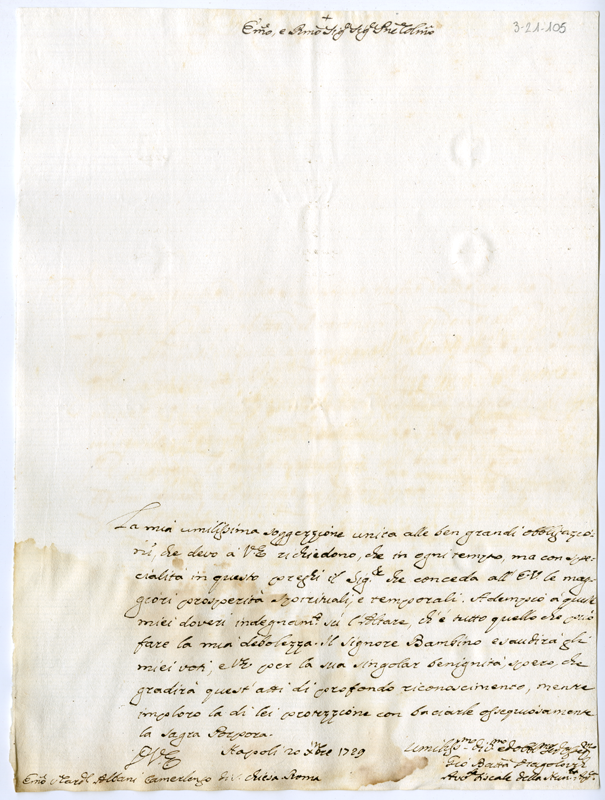 +
Emo, e Rmo Sig.r Sig.r Pne Colmo
3-21-105
La mia umilissima soggezzione unita alle ben grandi obbligazio-
ni, che devo à V.E. richiedono, che in ogni tempo, ma con spe-
cialità in questo preghi il Sig.re che conceda all'E.V. le mag-
giori prosperità spirituali, e temporali. Adempio a questi
miei doveri indegnam.te su l'Altare, ch'è tutto quello che può
fare la mia debolezza. Il Signore Bambino esaudirà gli
miei voti, e V.E. per la sua singolar benignità, spero, che
gradirà quest'atti di profondo riconoscimento, mentre
imploro la di lei protezzione con baciarle ossequiosamente
la Sagra Porpora.
D.V.E. Napoli 20 Xbre 1729
Umiliss.mo
Gio Batta
Emo Card.l Albani Camerlengo di S. Chiesa Roma
Avv.o Fiscale della